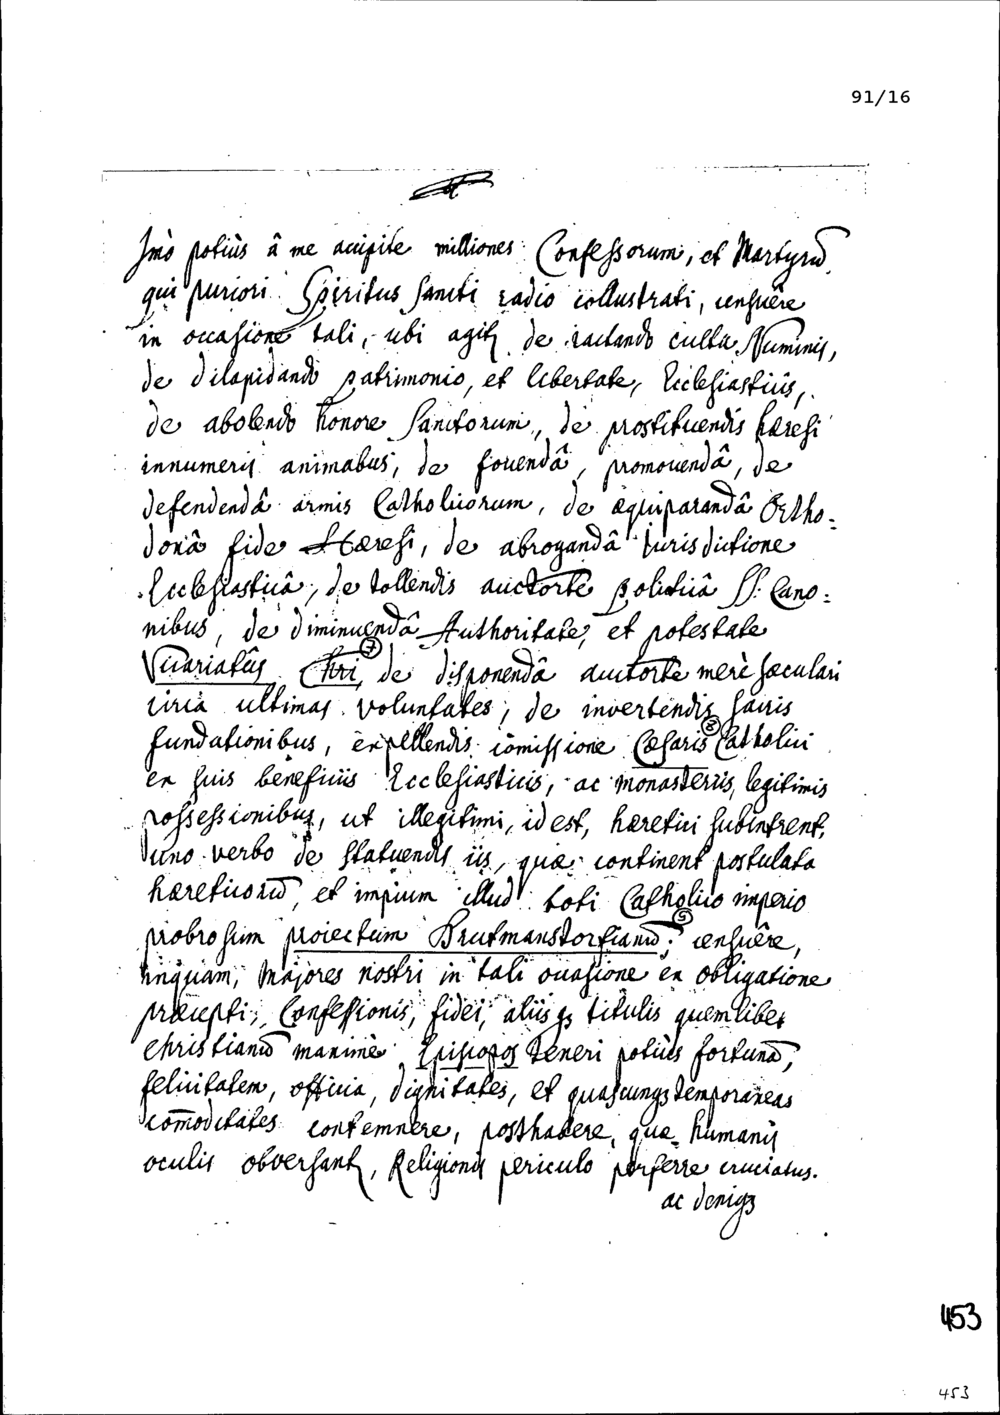 91/16
Imò potiùs â me accipite milliones Confessorum, et Martyrũ
qui puriori Spiritus Sancti radio collustrati, censuêre
in occasione tali, ubi agitꝫ de tractando cultu Numinis,
de dilapidando patrimonio, et libertate, Ecclesiasticis,
de abolendo honore Sanctorum, de prostituendis hæresi
innumeris animabus, de fovendâ, promovendâ, de
defendendâ armis Catholicorum, de æquiparandâ Ortho=
doxâ fide Hæresi, de abrogandâ Jurisdictione
Ecclesiasticâ, de tollendis auctorte politicâ SS. Cano=
nibus, de diminuendâ Authoritate, et potestate
Vicariatûs Chri, ⑦ de disponendâ auctorte merè sæculari
circa ultimas voluntates, de invertendis sacris
fundationibus, expellendis cõmissione Cæsaris ⑧ Catholici
ex suis beneficiis Ecclesiasticis, ac monasteriis, legitimis
possessionibus, ut illegitimi, id est, hæretici subintrent,
uno verbo de statuendis iis, quæ continent postulata
hæreticorũ, et impium illud toti Catholico imperio
probrosum proiectum Brutmanstorfianũ; ⑨ censuêre,
inquam, Majores nostri in tali occasione ex obligatione
præcepti, Confessionis, fidei, aliisqꝫ titulis quemlibet
christianũ maximè Episcopos teneri potiùs fortunã,
felicitatem, officia, dignitates, et quascunqꝫ temporaneas
cõmoditates contemnere, posthabere, quæ humanis
oculis obversantꝫ, Religionis periculo perferre cruciatus.
ac deniqꝫ
453
453